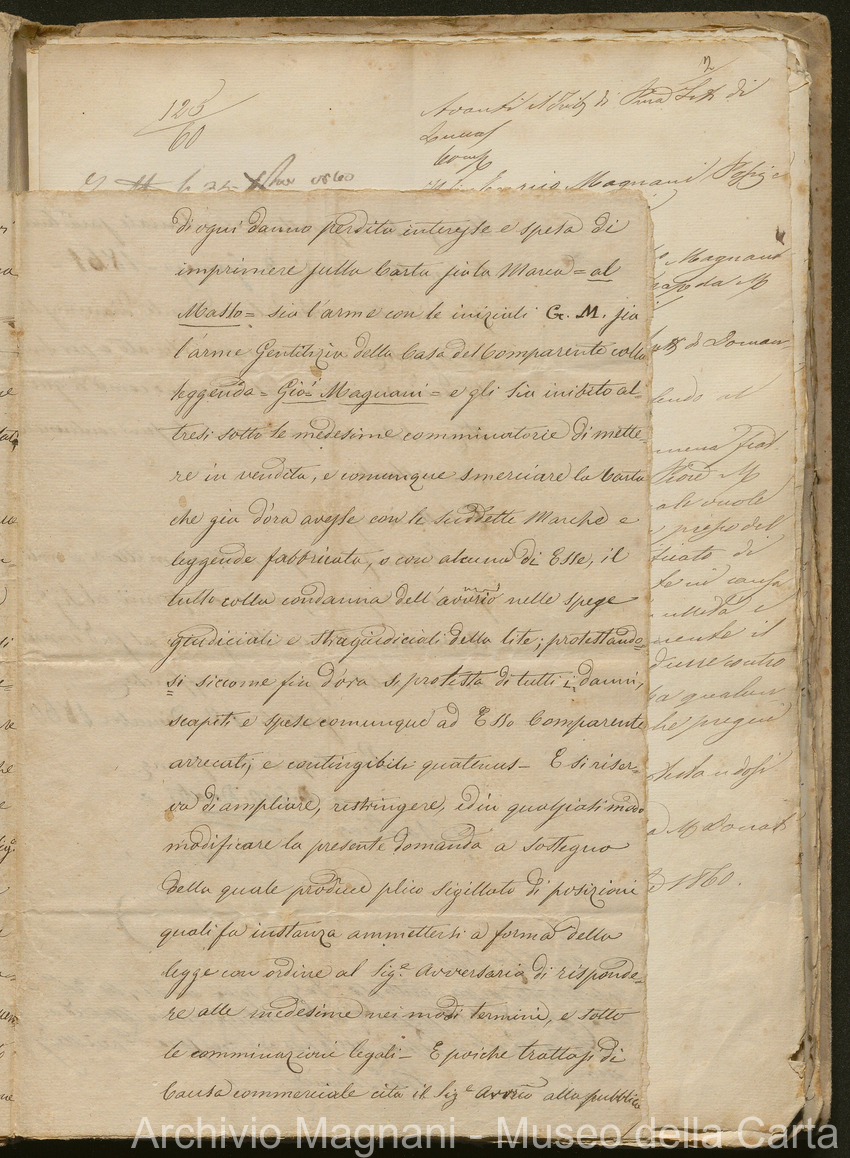 2
125
60
Avanti il Trib di Prima Istz di
Lucca
Comp
Magnani Pesci
di ogni danno perdita interesse e spesa di
imprimere sulla Carta sia la Marca = al
Masso = sia l'arme con le iniziali G. M. sia
l'arme Gentilizia della Casa del Comparente colla
leggenda = Gio: Magnani = e gli sia inibito al-
tresì sotto le medesime comminatorie di mette-
re in vendita, e comunque smerciare la Carta
che già d'ora avesse con le suddette Marche e
leggende fabbricata, o con alcuna di Esse, il
tutto colla condanna dell'avvrio nelle spese
giudiciali e stragiudiciali della lite; protestando=
si siccome fin d'ora si protesta di tutti i danni,
scapiti e spese comunque ad Esso Comparente
arrecati, e contingibili quatenus – E si riser-
va di ampliare, restringere, ed in qualsiasi modo
modificare la presente domanda a sostegno
della quale produce plico sigillato di posizioni
quali fa instanza ammettersi a forma della
legge con ordine al Sig.e Avversario di risponde=
re alle medesime nei modi termini, e sotto
le comminazioni legali – E poiche trattasi di
Causa commerciale cita il Sig.e Avvrio alla pubblica
Magnani
da M
di Doman
al
vuole
preso del
di
causa
e
il
contro
qualun
pregiu
M Donati
1860.
Archivio Magnani - Museo della Carta